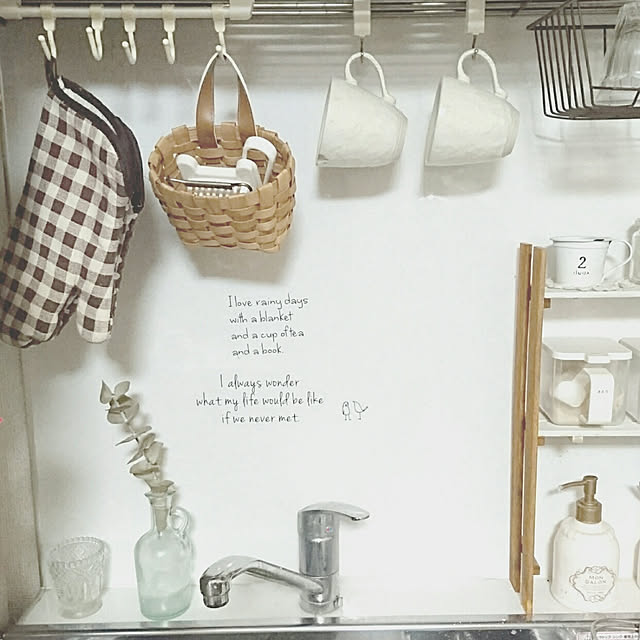 I love rainy days
with a blanket
and a cup of tea
and a book.
I always wonder
what my life would be like
if we never met.
2
MON
SALON